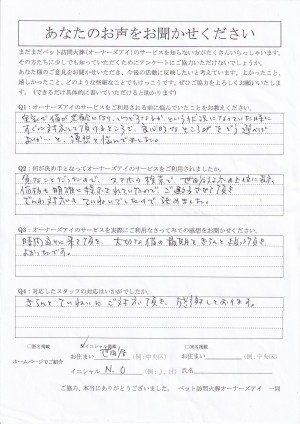 あなたのお声をお聞かせください
まだまだペット訪問火葬(オーナーズアイ)のサービスを知らない方がたくさんいらっしゃいます。
その方たちに少しでも知っていただくためにアンケートにご協力いただけないでしょうか。
あなた様のご意見をお聞かせいただき、今後の活動に反映したいと考えています。よかったこと、
嬉しかったこと、どのような些細なことでもけっこうです。ぜひ、ご協力をよろしくお願いいたします。
(できるだけ具体的に書いていただけると助かります)
Q1:オーナーズアイのサービスをご利用される前に悩んでいたことをお教えください。
すぐに対応して頂けるところで、
よいか…と、漠然と悩んでました。
Q2:何が決め手となってオーナーズアイのサービスをご利用されましたか。
急なことだったので、スマホの検索で、世田谷
価格も明確に提示されていたので、ご連絡させて頂き
でんわ対応もていねいでしたので決めました。
Q3:オーナーズアイのサービスを実際にご利用なさってみての感想をお聞かせください。
時間通りに来て頂き、大切な猫の最期をきちんと
よかったです。
Q4:対応したスタッフの対応はいかがでしたか。
きちんとていねいにご対応頂き、感謝しております。
□匿名掲載 イニシャル掲載 □実名掲載
ホームページでご紹介 お住まい 世田谷 (例:中央区) お住まい (例:中央区)
イニシャル N.O (例:J.H) 氏名
ご協力、本当にありがとうございました。 ペット訪問火葬オーナーズアイ 一同